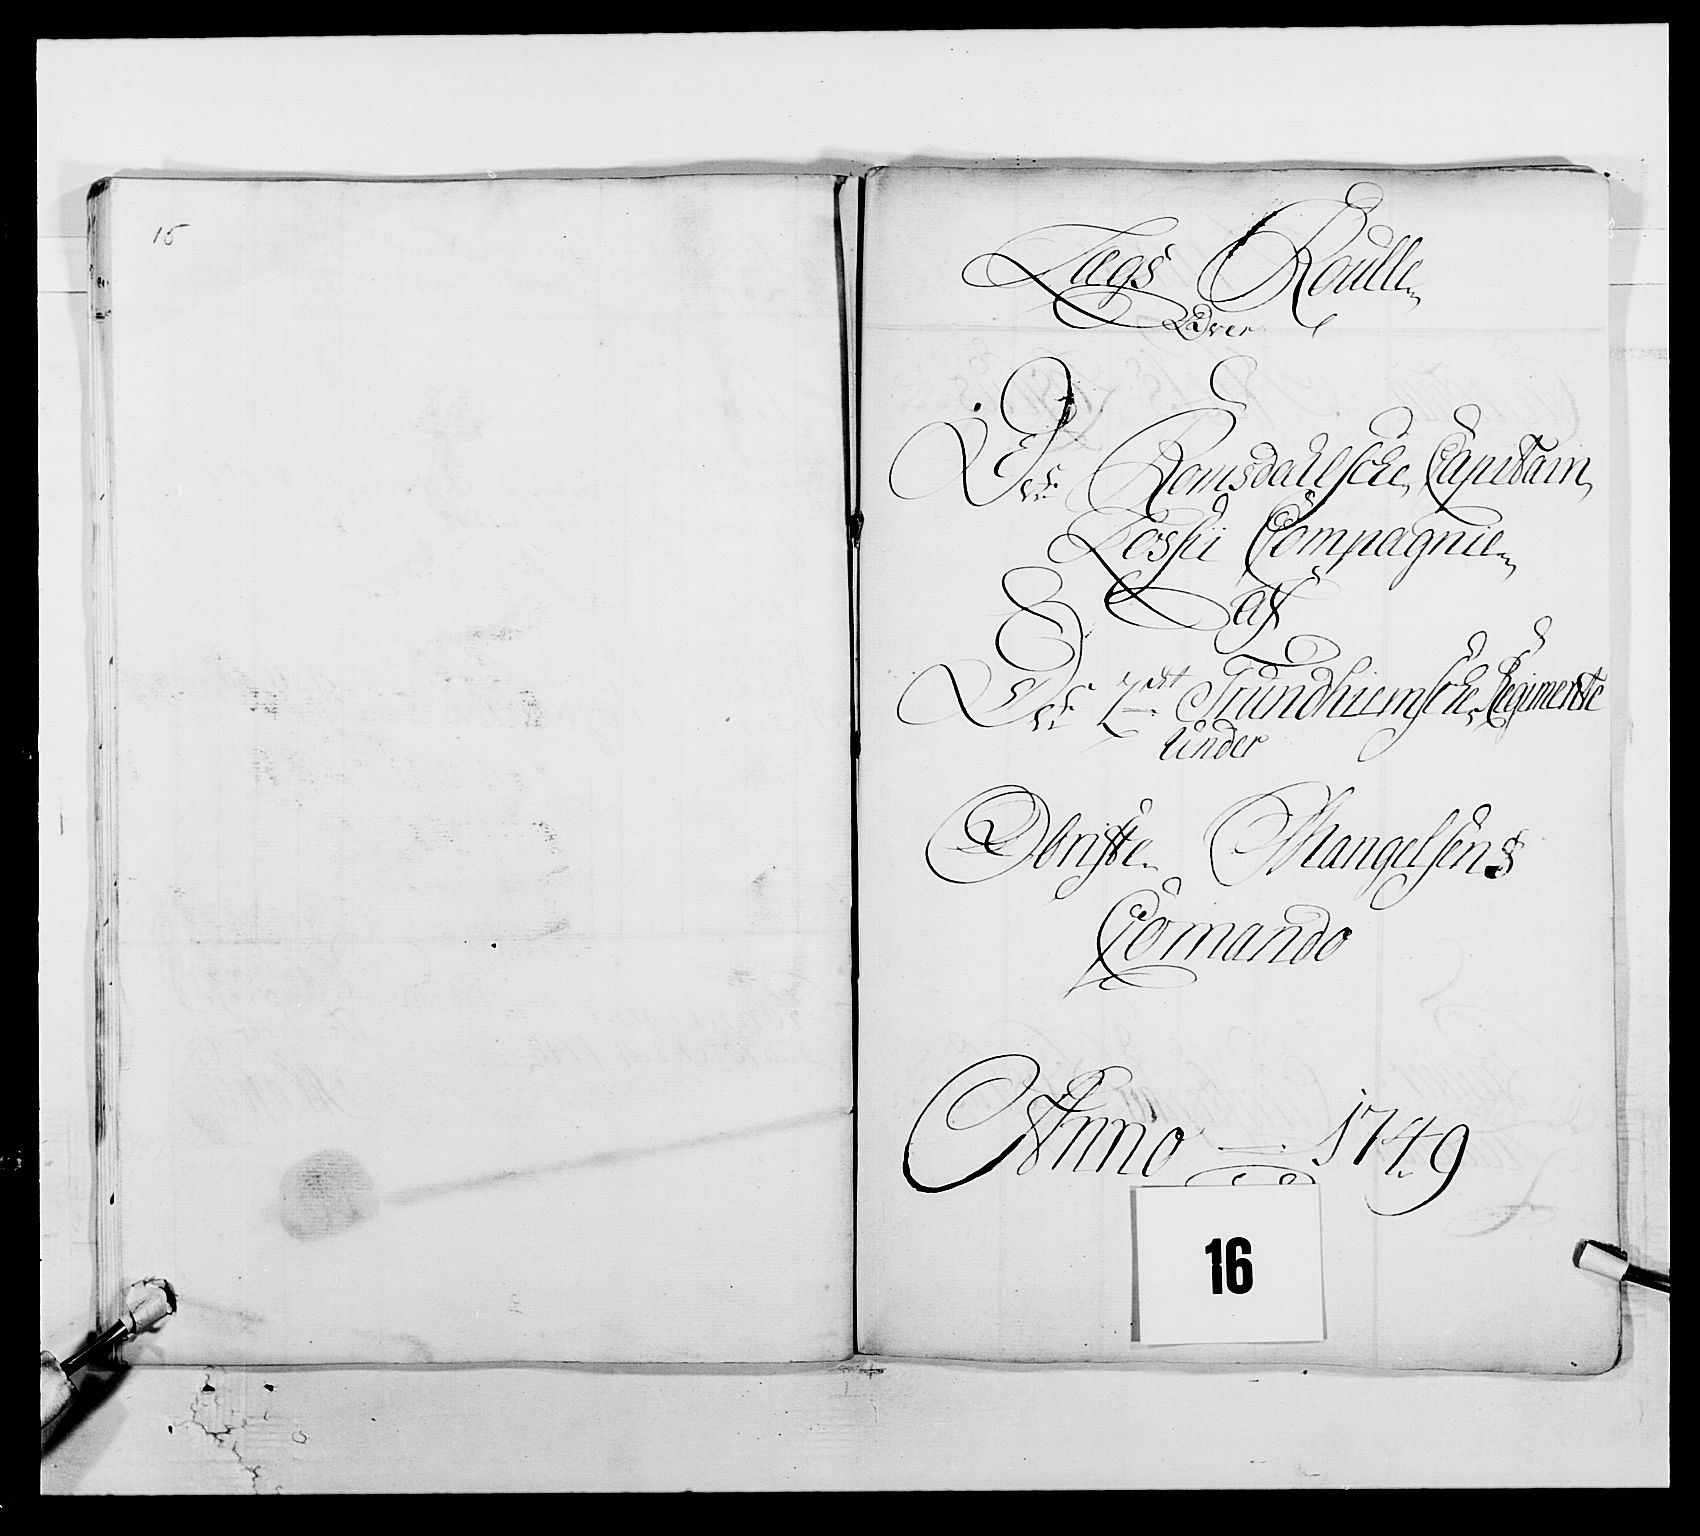 15
Lægs Roulle
Over
Det Romsdahlsche Capitain
Compagnie
af
Det 2det Trundhiemsche Regimente
Under
Obriste Mangelsens
Comando
Anno 1749
16